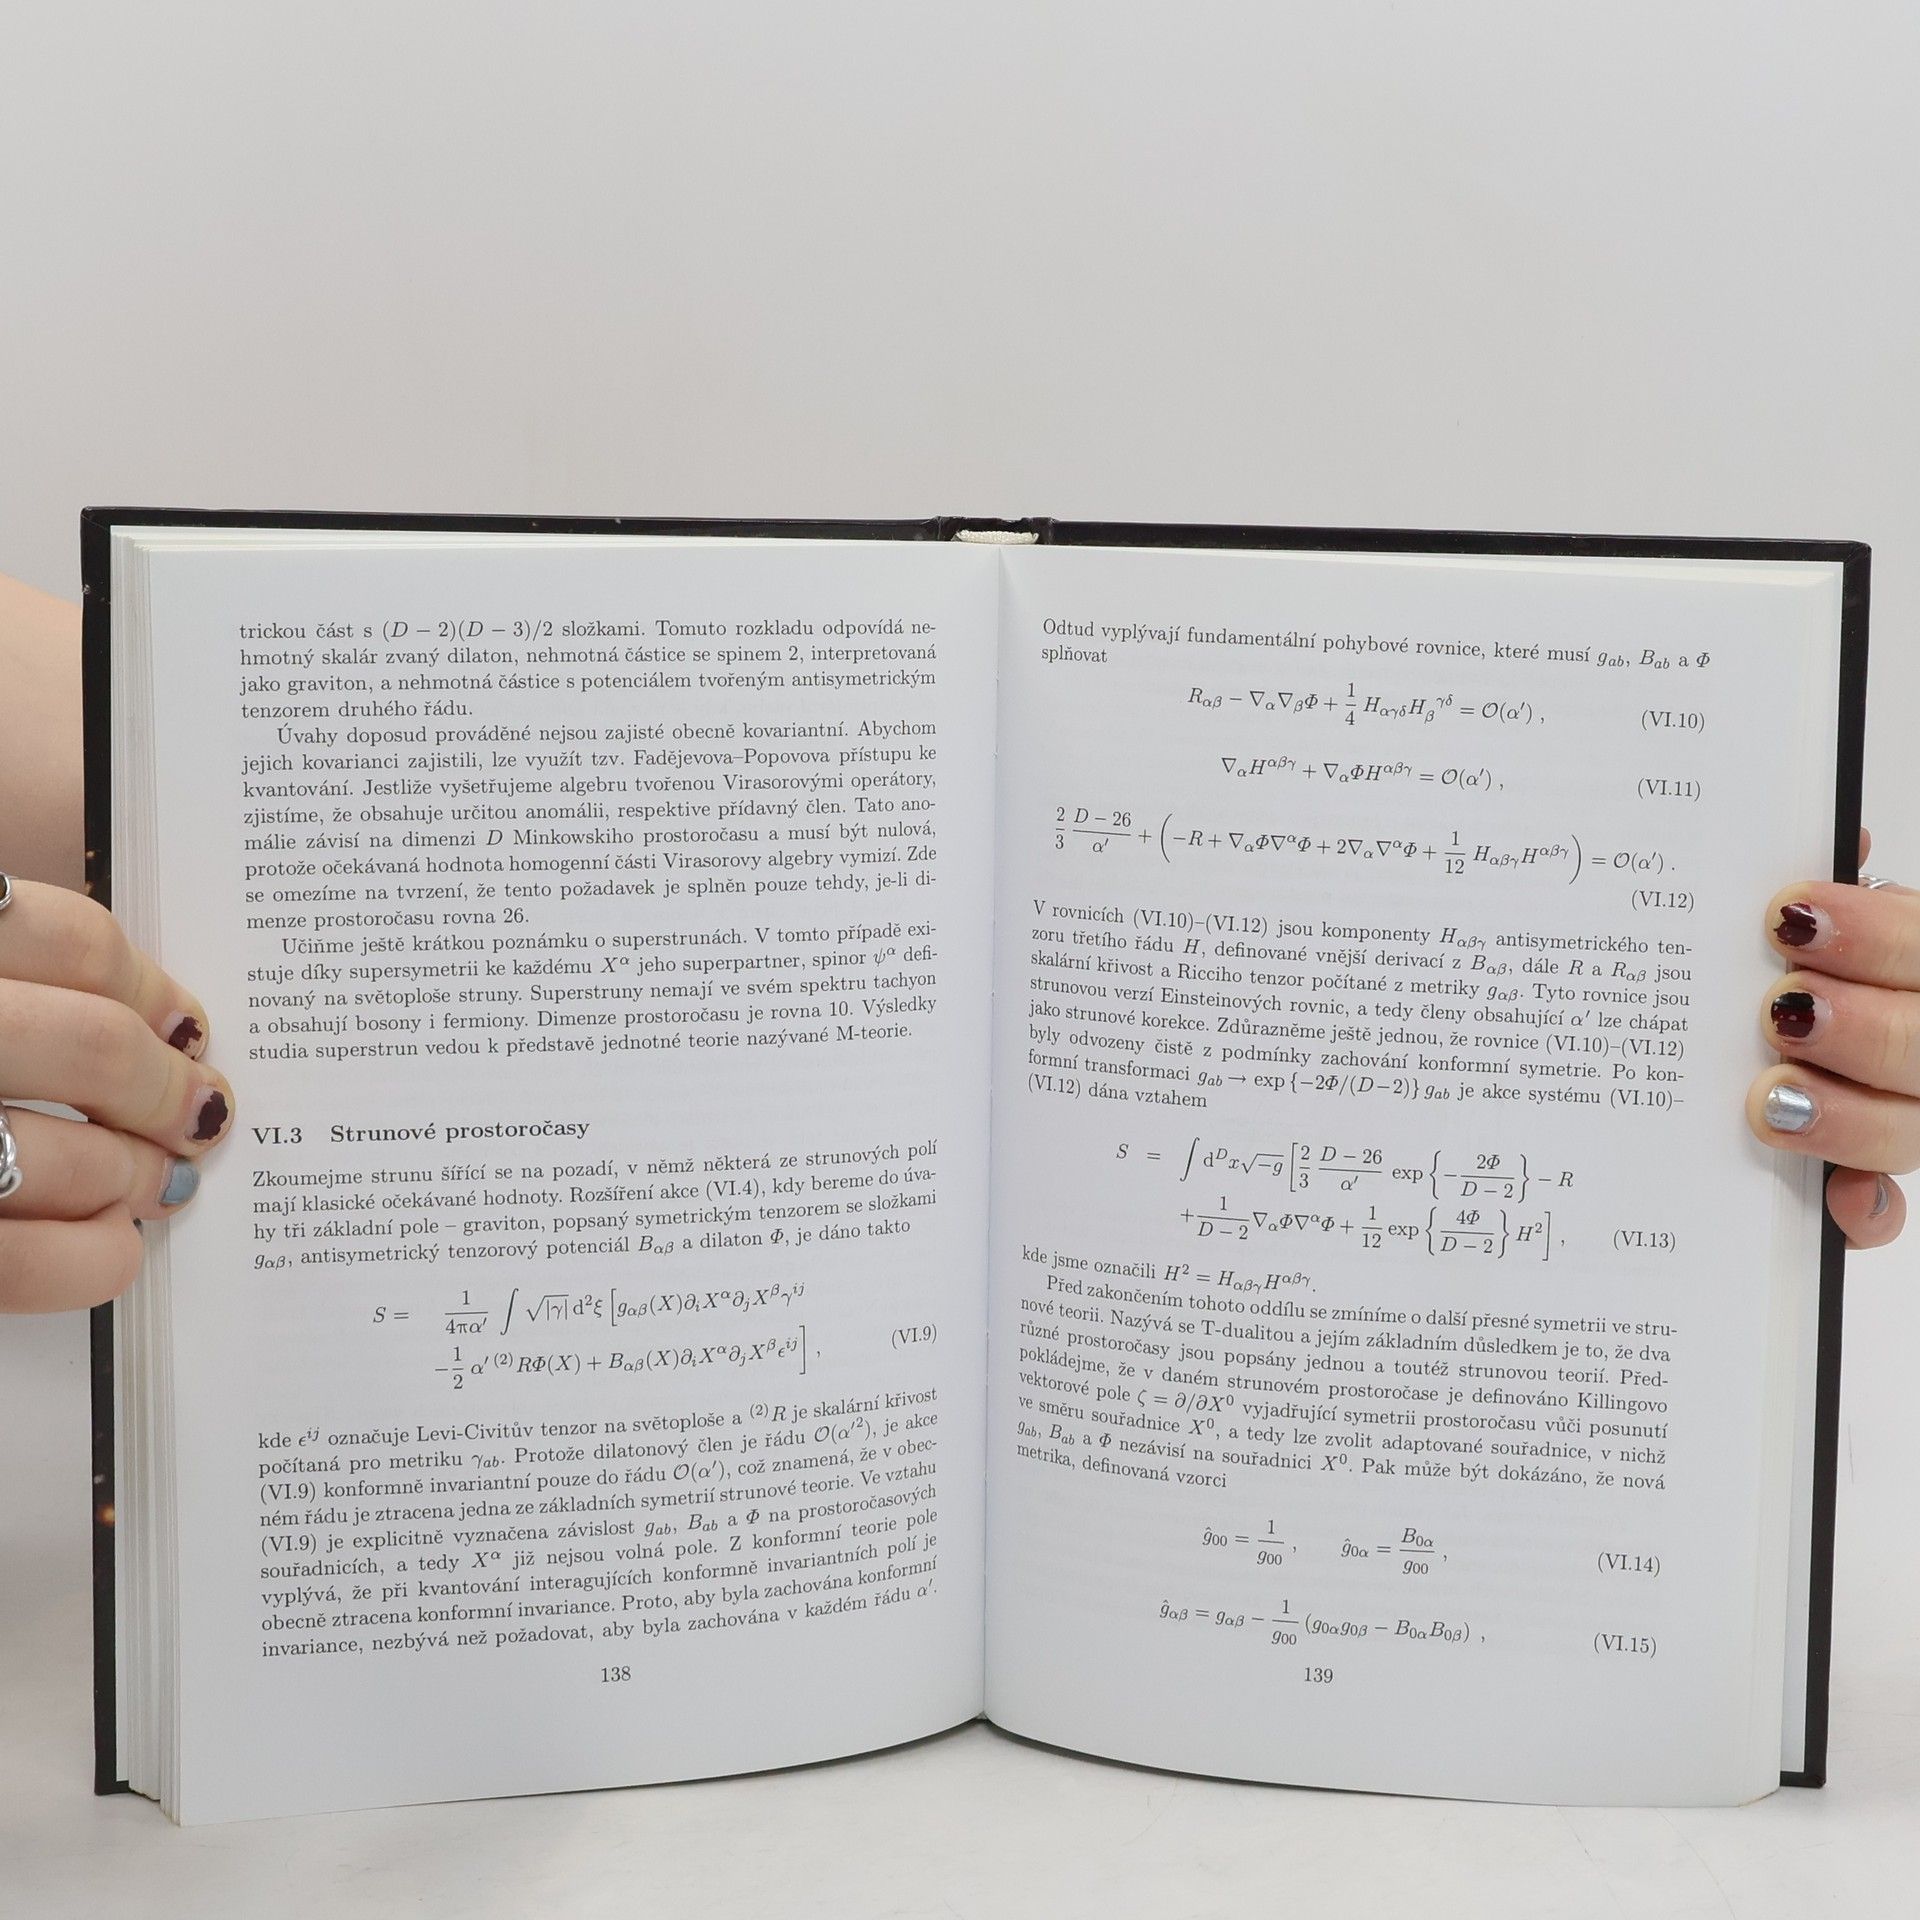 trickou část s (D − 2)(D − 3)/2 složkami. Tomuto rozkladu odpovídá ne-
hmotný skalár zvaný dilaton, nehmotná částice se spinem 2, interpretovaná
jako graviton, a nehmotná částice s potenciálem tvořeným antisymetrickým
tenzorem druhého řádu.
Úvahy doposud prováděné nejsou zajisté obecně kovariantní. Abychom
jejich kovarianci zajistili, lze využít tzv. Fadějevova–Popovova přístupu ke
kvantování. Jestliže vyšetřujeme algebru tvořenou Virasorovými operátory,
zjistíme, že obsahuje určitou anomálii, respektive přídavný člen. Tato ano-
málie závisí na dimenzi D Minkowskiho prostoročasu a musí být nulová,
protože očekávaná hodnota homogenní části Virasorovy algebry vymizí. Zde
se omezíme na tvrzení, že tento požadavek je splněn pouze tehdy, je-li di-
menze prostoročasu rovna 26.
Učiňme ještě krátkou poznámku o superstrunách. V tomto případě exi-
stuje díky supersymetrii ke každému X^α jeho superpartner, spinor ψ^α defi-
novaný na světoploše struny. Superstruny nemají ve svém spektru tachyon
a obsahují bosony i fermiony. Dimenze prostoročasu je rovna 10. Výsledky
studia superstrun vedou k představě jednotné teorie nazývané M-teorie.
VI.3 Strunové prostoročasy
Zkoumejme strunu šířící se na pozadí, v němž některá ze strunových polí
mají klasické očekávané hodnoty. Rozšíření akce (VI.4), kdy bereme do úva-
hy tři základní pole – graviton, popsaný symetrickým tenzorem se složkami
g_{αβ}, antisymetrický tenzorový potenciál B_{αβ} a dilaton Φ, je dáno takto
S = 1/(4πα′) ∫ √|γ| d²ξ [g_{αβ}(X)∂_iX^α∂_jX^βγ^{ij}
−1/2 α′ ^{(2)}RΦ(X) + B_{αβ}(X)∂_iX^α∂_jX^βϵ^{ij}] , (VI.9)
kde ϵ^{ij} označuje Levi-Civitův tenzor na světoploše a ^{(2)}R je skalární křivost
počítaná pro metriku γ_{ab}. Protože dilatonový člen je řádu O(α′²), je akce
(VI.9) konformně invariantní pouze do řádu O(α′), což znamená, že v obec-
ném řádu je ztracena jedna ze základních symetrií strunové teorie. Ve vztahu
(VI.9) je explicitně vyznačena závislost g_{ab}, B_{ab} a Φ na prostoročasových
souřadnicích, a tedy X^α již nejsou volná pole. Z konformní teorie pole
vyplývá, že při kvantování interagujících konformně invariantních polí je
obecně ztracena konformní invariance. Proto, aby byla zachována konformní
invariance, nezbývá než požadovat, aby byla zachována v každém řádu α′.
138
Odtud vyplývají fundamentální pohybové rovnice, které musí g_{ab}, B_{ab} a Φ
splňovat
R_{αβ} − ∇_α∇_βΦ + 1/4 H_{αγδ}H_β^{γδ} = O(α′) , (VI.10)
∇_αH^{αβγ} + ∇_αΦH^{αβγ} = O(α′) , (VI.11)
2/3 (D − 26)/α′ + (−R + ∇_αΦ∇^αΦ + 2∇_α∇^αΦ + 1/12 H_{αβγ}H^{αβγ}) = O(α′) .
(VI.12)
V rovnicích (VI.10)–(VI.12) jsou komponenty H_{αβγ} antisymetrického ten-
zoru třetího řádu H, definované vnější derivací z B_{αβ}, dále R a R_{αβ} jsou
skalární křivost a Ricciho tenzor počítané z metriky g_{αβ}. Tyto rovnice jsou
strunovou verzí Einsteinových rovnic, a tedy členy obsahující α′ lze chápat
jako strunové korekce. Zdůrazněme ještě jednou, že rovnice (VI.10)–(VI.12)
byly odvozeny čistě z podmínky zachování konformní symetrie. Po kon-
formní transformaci g_{ab} → exp {−2Φ/(D−2)} g_{ab} je akce systému (VI.10)–
(VI.12) dána vztahem
S = ∫ d^Dx√−g [2/3 (D − 26)/α′ exp {−2Φ/(D − 2)} − R
+1/(D − 2) ∇_αΦ∇^αΦ + 1/12 exp {4Φ/(D − 2)} H²] , (VI.13)
kde jsme označili H² = H_{αβγ}H^{αβγ}.
Před zakončením tohoto oddílu se zmíníme o další přesné symetrii ve stru-
nové teorii. Nazývá se T-dualitou a jejím základním důsledkem je to, že dva
různé prostoročasy jsou popsány jednou a toutéž strunovou teorií. Před-
pokládejme, že v daném strunovém prostoročase je definováno Killingovo
vektorové pole ζ = ∂/∂X⁰ vyjadřující symetrii prostoročasu vůči posunutí
ve směru souřadnice X⁰, a tedy lze zvolit adaptované souřadnice, v nichž
g_{ab}, B_{ab} a Φ nezávisí na souřadnici X⁰. Pak může být dokázáno, že nová
metrika, definovaná vzorci
ĝ_{00} = 1/g_{00} , ĝ_{0α} = B_{0α}/g_{00} , (VI.14)
ĝ_{αβ} = g_{αβ} − 1/g_{00} (g_{0α}g_{0β} − B_{0α}B_{0β}) , (VI.15)
139